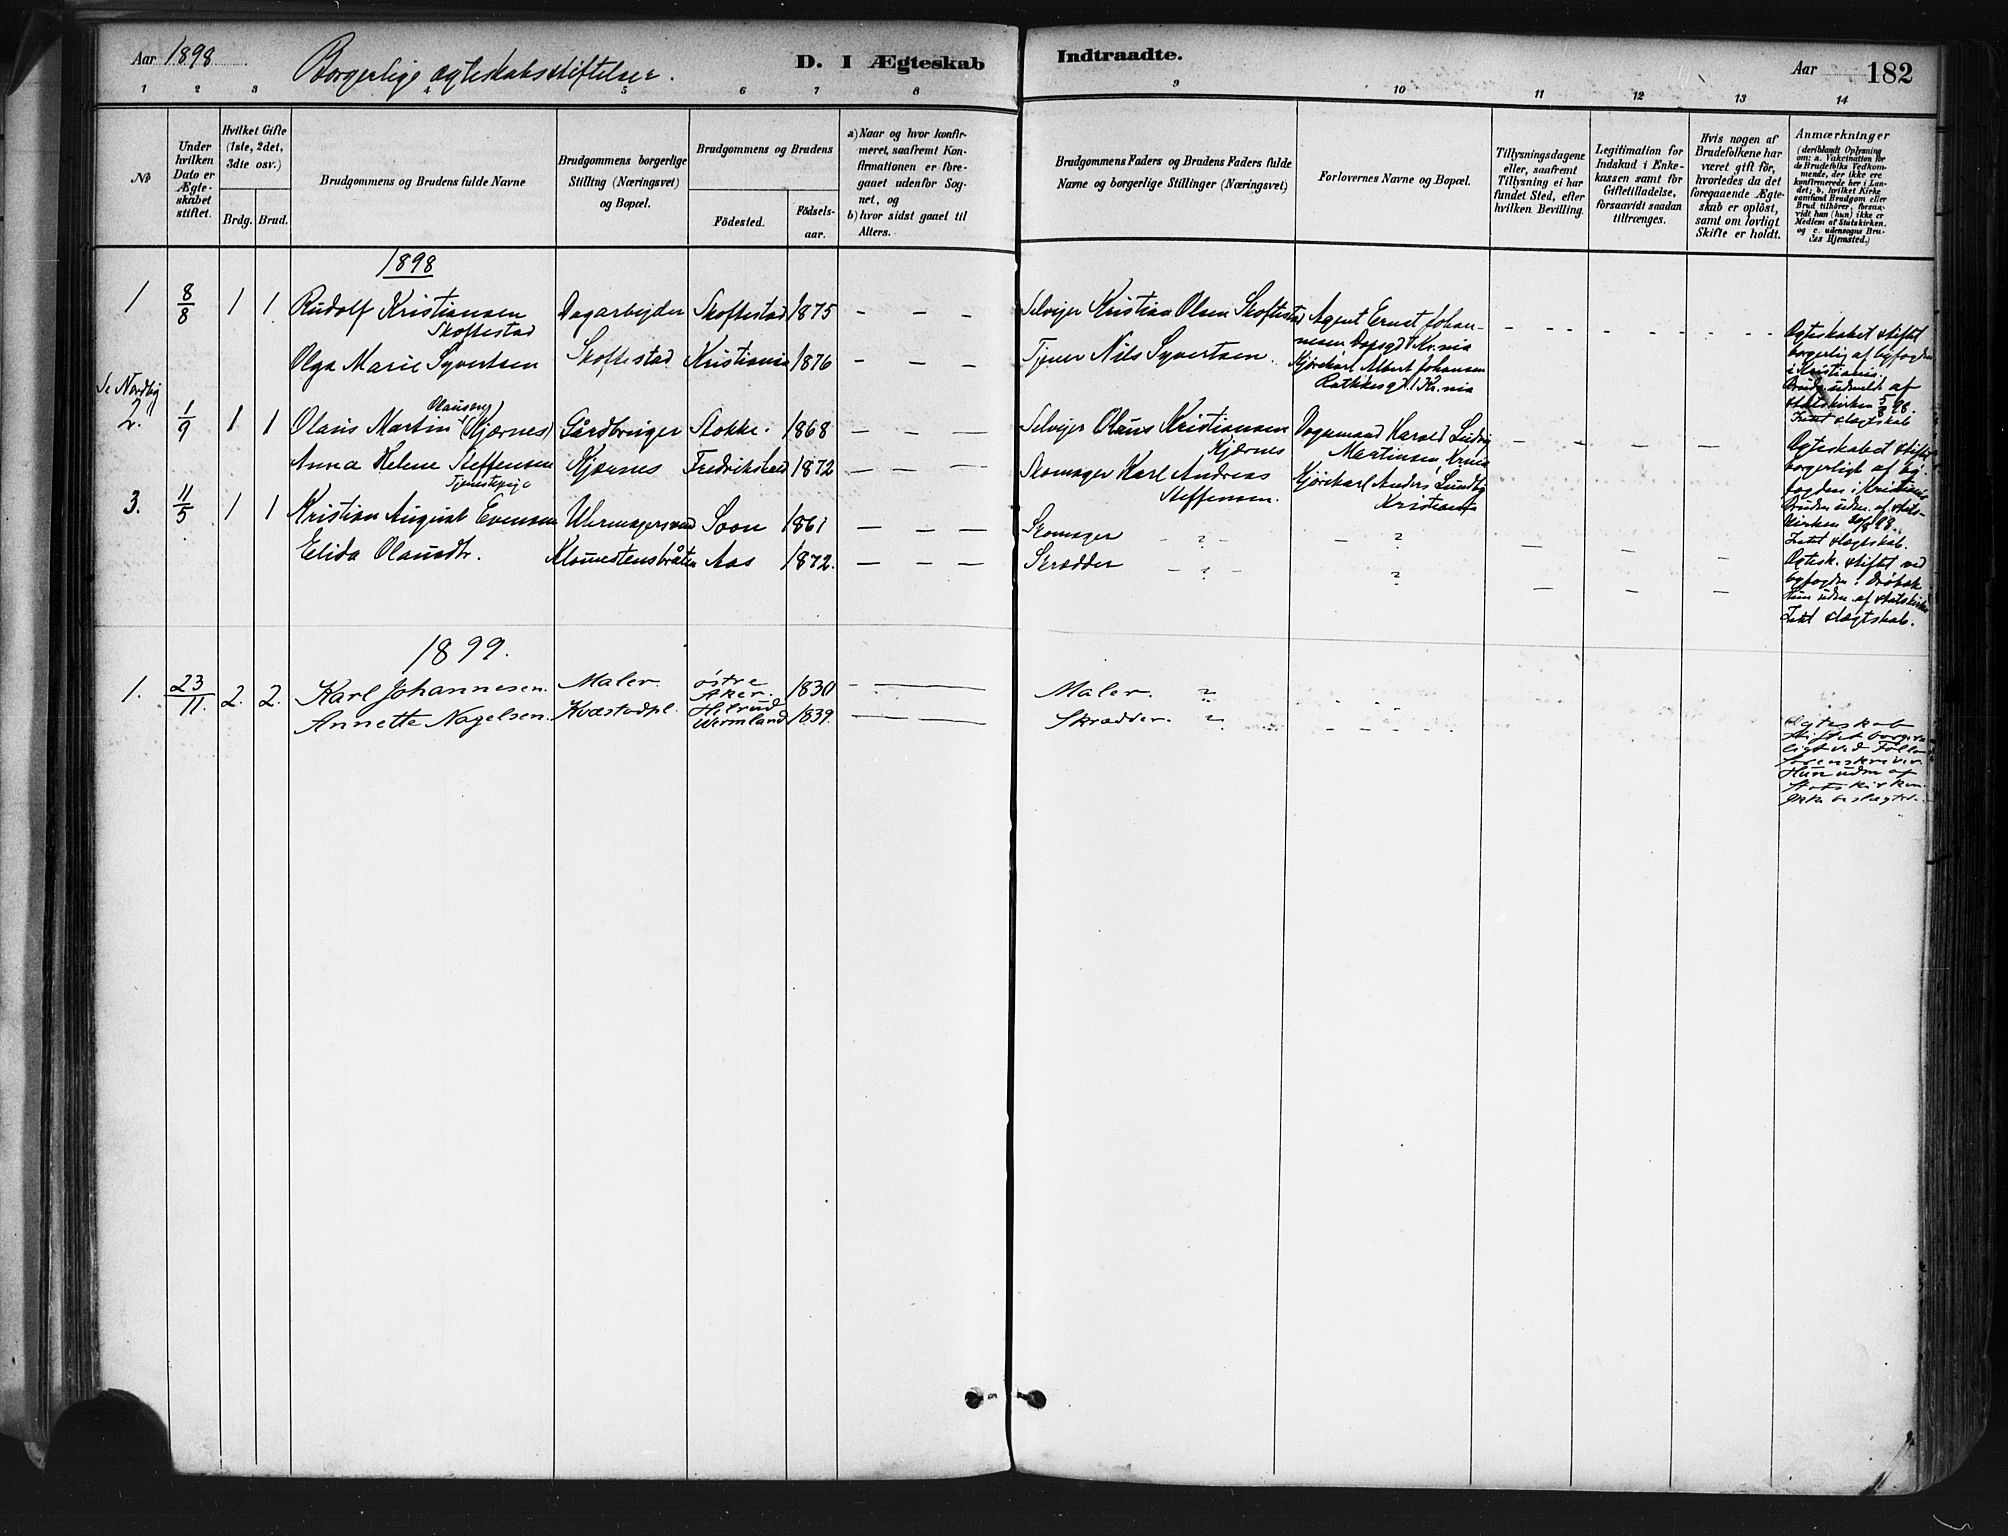 Aar 1898
Borgerlige ægteskabsstiftelser.
D. I Ægteskab Indtraadte.
Aar 182
1 2 3 4 5 6 7 8 9 10 11 12 13 14
№
Under hvilken Dato er Ægteskabet stiftet.
Hvilket Gifte (1ste, 2det, 3die osv.)
Brdg. Brud.
Brudgommens og Brudens fulde Navne
Brudgommens borgerlige Stilling (Næringsvei) og Bopæl.
Brudgommens og Brudens
Födested.
Födselsaar.
a) Naar og hvor konfirmeret, saafremt Konfirmationen er foregaaet udenfor Sognet, og
b) hvor sidst gaaet til Alters.
Brudgommens Faders og Brudens Faders fulde Navne og borgerlige Stillinger (Næringsvei)
Forlovernes Navne og Bopæl.
Tillysningsdagene eller, saafremt Tillysning ei har fundet Sted, efter hvilken Bevilling.
Legitimation for Indskud i Enkekassen samt for Giftetilladelse, forsaavidt saadan tiltrænges.
Hvis nogen af Brudefolkene har været gift för, hvorledes da det foregaaende Ægteskab er oplöst, samt om lovligt Skifte er holdt.
Anmærkninger
(deriblandt Oplysning om: a. Vakcination for de Brudefolks Vedkommende, der ikke ere konfirmerede her i Landet; b. hvilket Kirkesamfund Brudgom eller Brud tilhörer, forsaavidt han (hun) ikke er Medlem af Statskirken, og c. udensogns Brudes Hjemsted.)
1898
1 8/8 1 1 Rudolf Kristiansen Dagarbejder Skoftestad 1875 – – –
Skoftestad
Selvejer Kristian Olsen Skoftestad Agent Ernst Johannesen
Kr.nia
Olga Marie Syvertsen Skoftestad Kristiania 1876 – – –
Tjener Nils Syvertsen. Kjörekarl Albert Johansen
Rathkesgt. Kr.nia
Ægteskabet stiftet
borgerlig af byfogden
i Kristiania.
Bruden udmeldt af
statskirken 5/8 98.
Intet slægtskab
Se Nordby
2. 1/9 1 1 Olaus Martin Olausen (Kjærnes) Gårdbruger Stokke. 1868 – – –
Selvejer Olaus Kristiansen Kjærnes
Harald Ludvig Martinsen, Kr.nia
Anna Helene Steffensen Kjærnes Fredrikshald 1872 – – –
Tjenestepige
Skomager Karl Andreas Steffensen.
Kjörekarl Anders Lundby Kristiania
Ægteskabet stiftet
borgerligt af byfogden
i Kristiania
Bruden udm. af statskirken
Intet slægtskab.
3. 11/5 1 1 Kristian August Evensen Uhrmagersvend Soon 1861 – – –
Skomager – ? – – ?
Elida Olausdtr. Klommestensbråten Aas 1872. – – –
Skrædder – ? – ?
Ægtesk. stiftet ved
byfogden i Dröbak
Hun udm. af statskirken
Intet slægtskab.
1899.
1. 23/11. 2. 2. Karl Johannesen. Maler. östre Aker. 1830
Maler. ?
Annette Nagelsen. Kvæstadpl. Wermland 1839.
Skrædder. ?
Ægteskab
stiftet borgerligt
ved Follo
Sorenskriver
Hun udm af
Statskirken.
Ikke beslægtet.